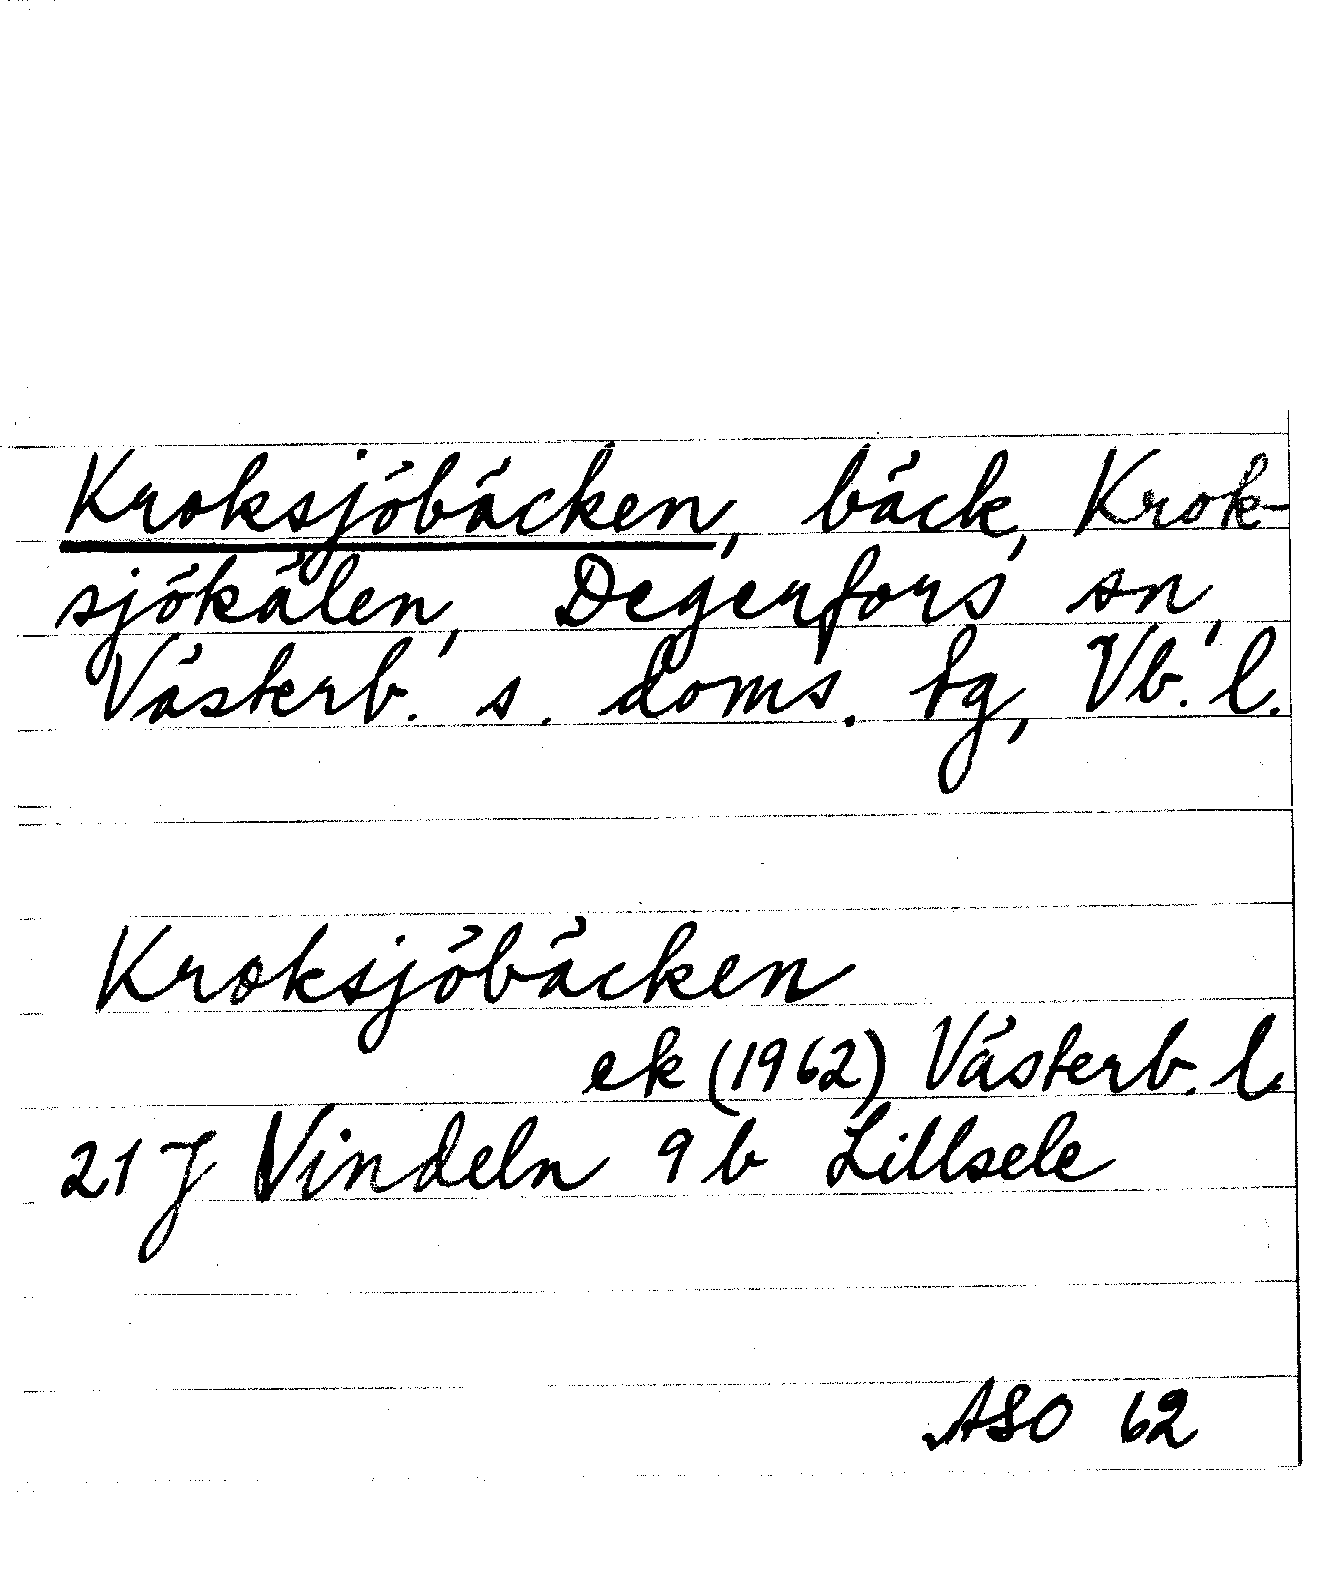 Kroksjöbäcken, bäck, Krok-
sjökälen, Degerfors sn,
Västerb. s. doms. tg, Vb. l.
Kroksjöbäcken
ek (1962) Västerb. l.
21 J Vindeln 9 b Lillsele
ASO 62